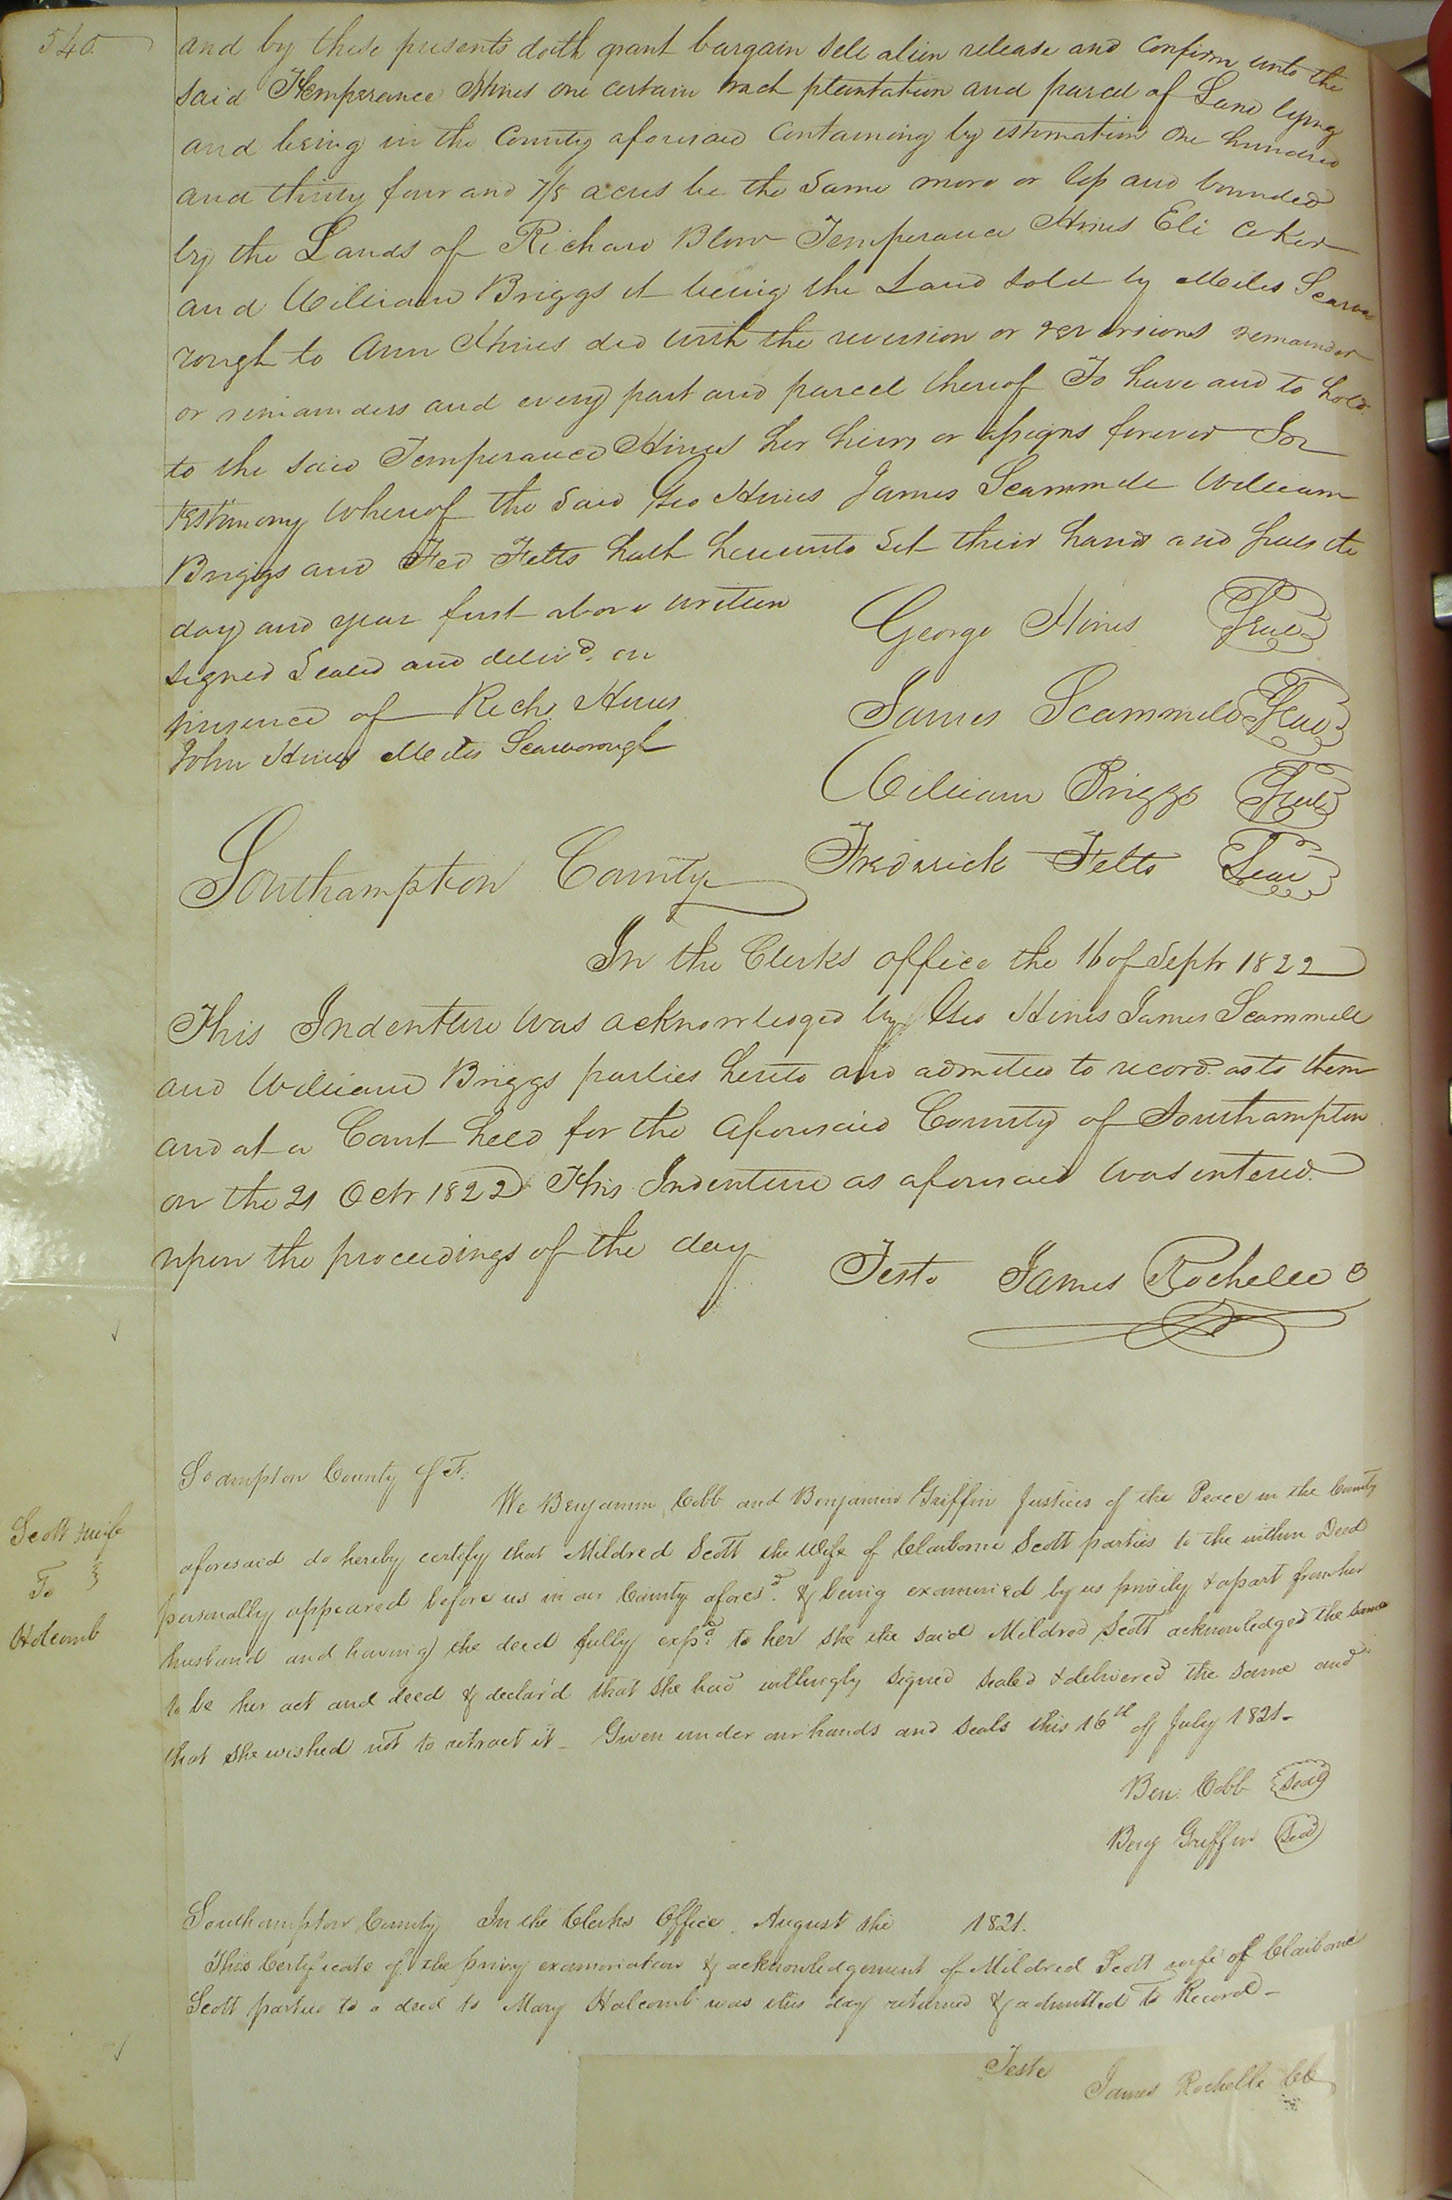 540
and by these presents doth grant bargain sell alien release and confirm unto the
said Temperance Hines one certain tract plantation and parcel of Land lying
and being in the County aforesaid Containing by estimation One hundred
and thirty four and 7/8 acres be the Same more or less and bounded
by the Lands of Richard Blow Temperance Hines Eli Coker
and William Briggs it being the Land sold by Miles Scarbo
rough to Ann Hines decd with the reversion or reversions remainder
or remainders and every part and parcel thereof To have and to hold
to the said Temperance Hines her heirs or assigns forever In
testimony whereof the Said Geo Hines James Scammell William
Briggs and Fed Felts hath hereunto Set their hands and seals the
day and year first above written
signed Sealed and delivd. in
presence of Rich Hines
John Hines Miles Scarborough
George Hines Seal
James Scammell Seal
William Briggs Seal
Fredrick Felts Seal
Southampton County
In the Clerks office the 16 of Septr 1822
This Indenture was acknowledged by Geo Hines James Scammell
and William Briggs parties hereto and admitted to record as to them
and at a Court held for the aforesaid County of Southampton
on the 21 Octr 1822 This Indenture as aforesaid was entered
upon the proceedings of the day
Teste James Rochelle C
Scott & wife
To
Holcomb
So ampton County SsT.
We Benjamin Cobb and Benjamin Griffin Justices of the Peace in the County
aforesaid do hereby certify that Mildred Scott the Wife of Claiborne Scott parties to the within Deed
personally appeared before us in our County aforesd. & being examined by us privily & apart from her
husband and having the deed fully expd. to her she the said Mildred Scott acknowledged the same
to be her act and deed & declar'd that she had willingly signed sealed & delivered the same and
that she wished not to retract it _ Given under our hands and seals this 16th of July 1821 -
Ben: Cobb Seal
Benj Griffin Seal
Southampton County In the Clerks Office August the 1821.
This Certificate of the privy examination & acknowledgement of Mildred Scott wife of Claiborne
Scott parties to a deed to Mary Holcomb was this day returned & admitted to Record -
Teste
James Rochelle Clk